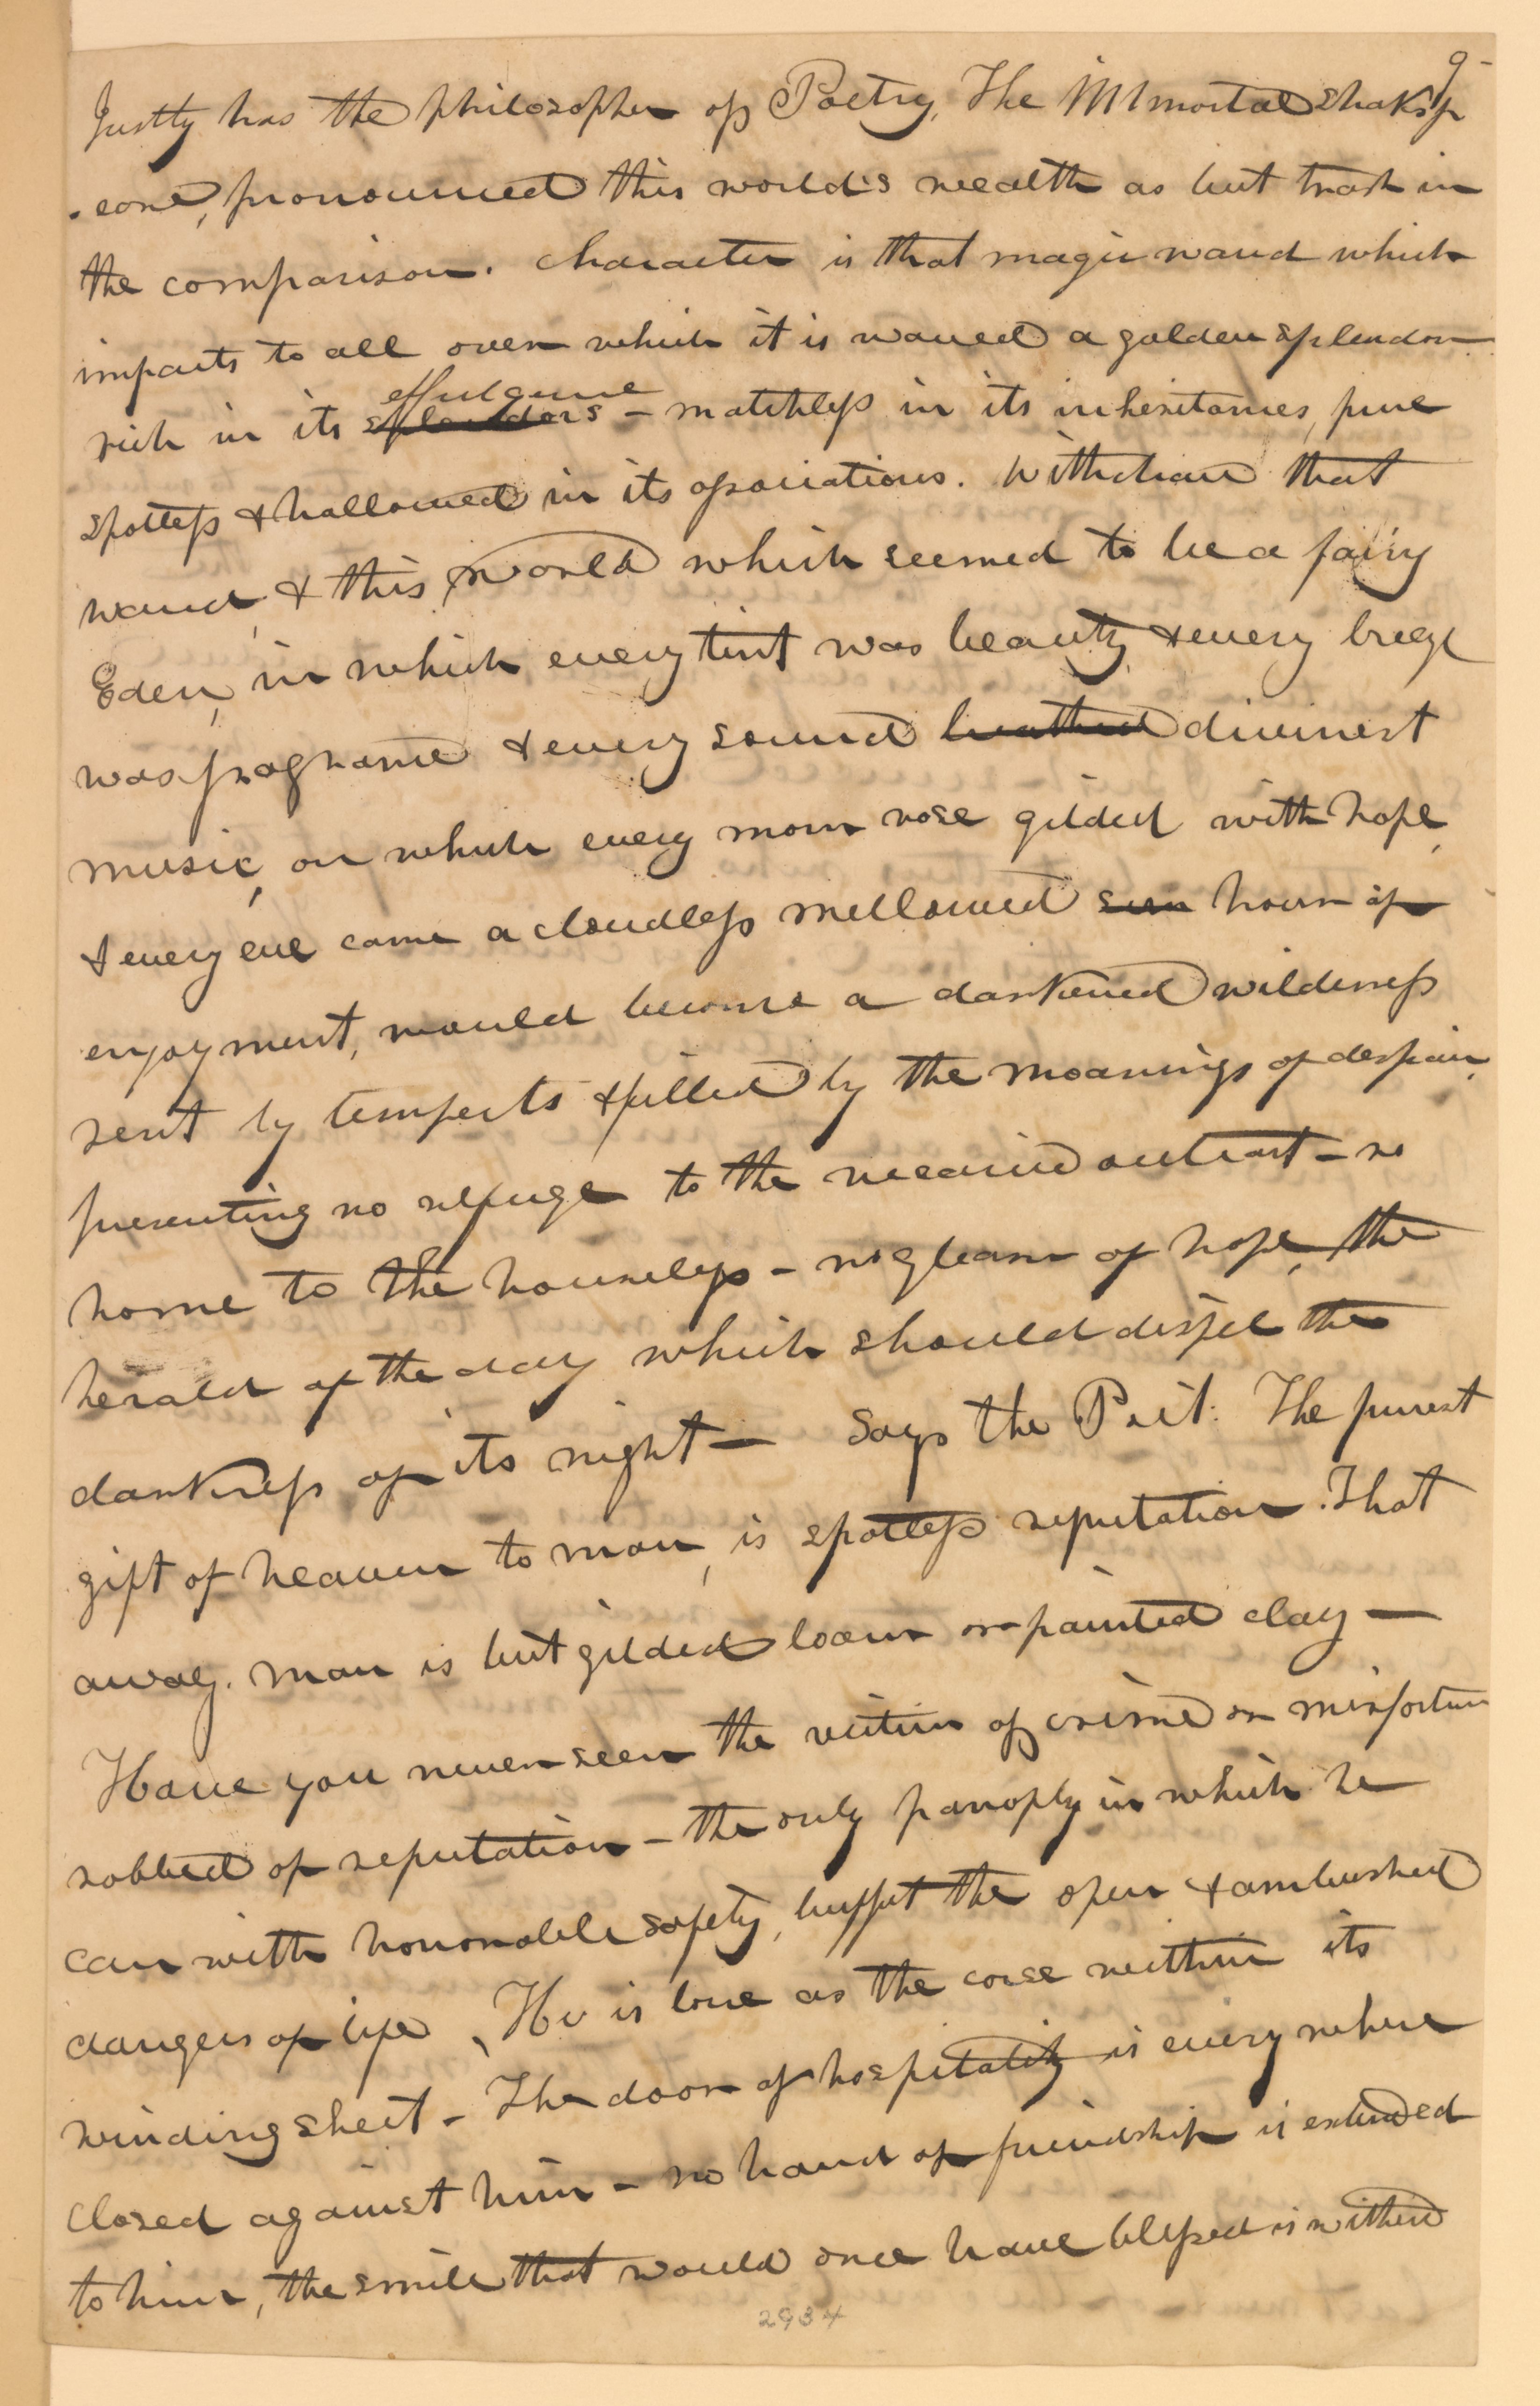 9
Justly has the philosopher of Poetry, The IMmortal Shaksp
-eare, pronounced this world's wealth as but trash in
the comparison. Character is that magic wand which
imparts to all over which it is waved a golden splendor
effulgence
rich in its splendors - matchless in its inheritances, pure
spotless & hallowed in its associations. Withdraw that
wand, & this world which seemed to be a fairy
Eden, in which every tint was beauty, & every breeze
was fragrance & every sound breathed divinest
music, on which every morn rose gilded with hope,
& every eve came a cloudless mellowed sun hour of
enjoyment, would become a darkened wilderness
rent by tempests & filled by the moanings of despair,
presenting no refuge to the wearied outcast - no
home to the houseless - no gleam of hope, the
herald of the day which should dispel the
darkness of its night - Says the Poet. The purest
gift of heaven to man, is spotless reputation. That
away, man is but gilded loam or painted clay -
Have you never seen the victim of crime or misfortune
robbed of reputation - the only panoply in which he
can with honorable safety, buffet the open & ambushed
dangers of life, He is lone as the corse within its
winding sheet - The door of hospitality is every where
closed against him - no hand of friendship is extended
to him, the smile that would once have blessed is withered
2934